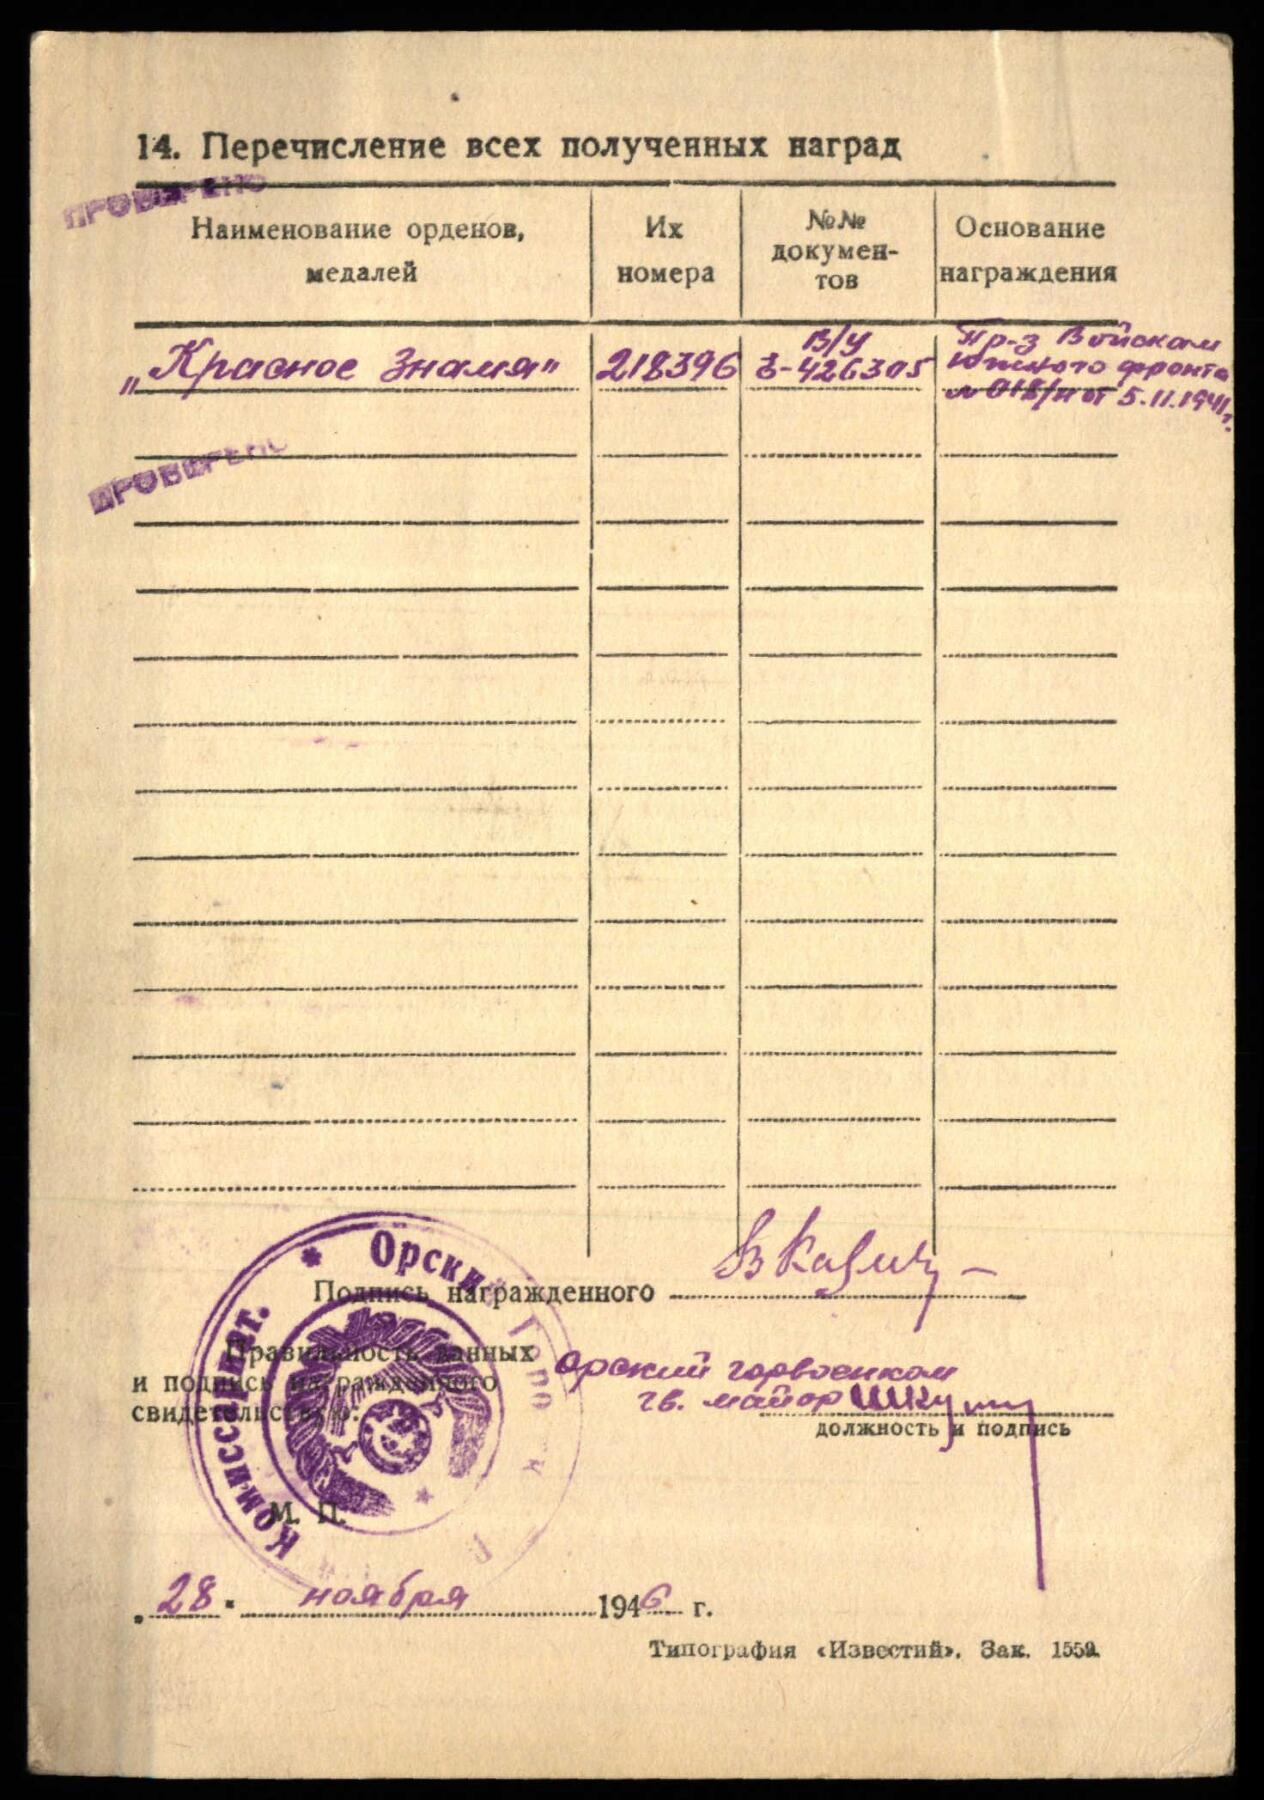 14. Перечисление всех полученных наград
ПРОВЕРЕНО
Наименование орденов,
медалей
Их
номера
№№
докумен-
тов
Основание
награждения
„Красное Знамя"
218396
В/У
426305
Пр-з Войскам
Южного фронта
от 5.11.1941г.
ПРОВЕРЕНО
Орский Горво
Комиссариат.
Подпись награжденного
Правильность данных
и подпись награжденного
свидетельствую:
Орский горвоенком
гв. майор
должность и подпись
М. П.
„28" ноября 1946 г.
Типография «Известий». Зак. 1559.